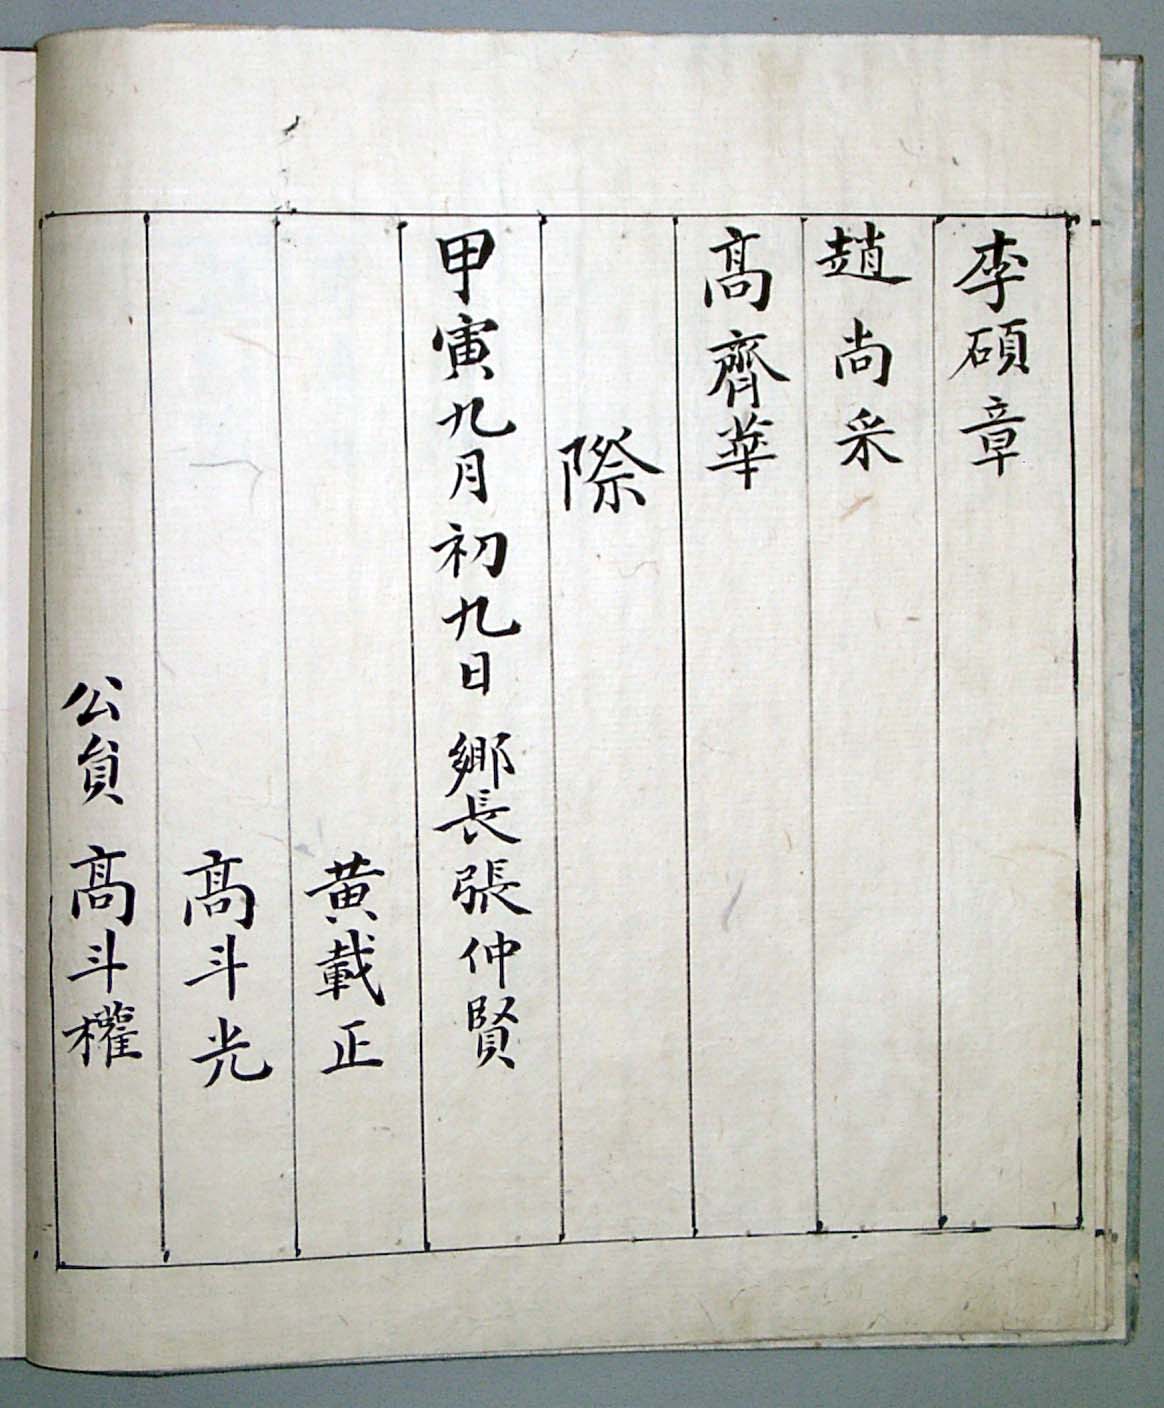 李碩章
趙尚采
髙齊華
際
甲寅九月初九日鄕長張仲賢
黃載正
髙斗光
公貟髙斗權